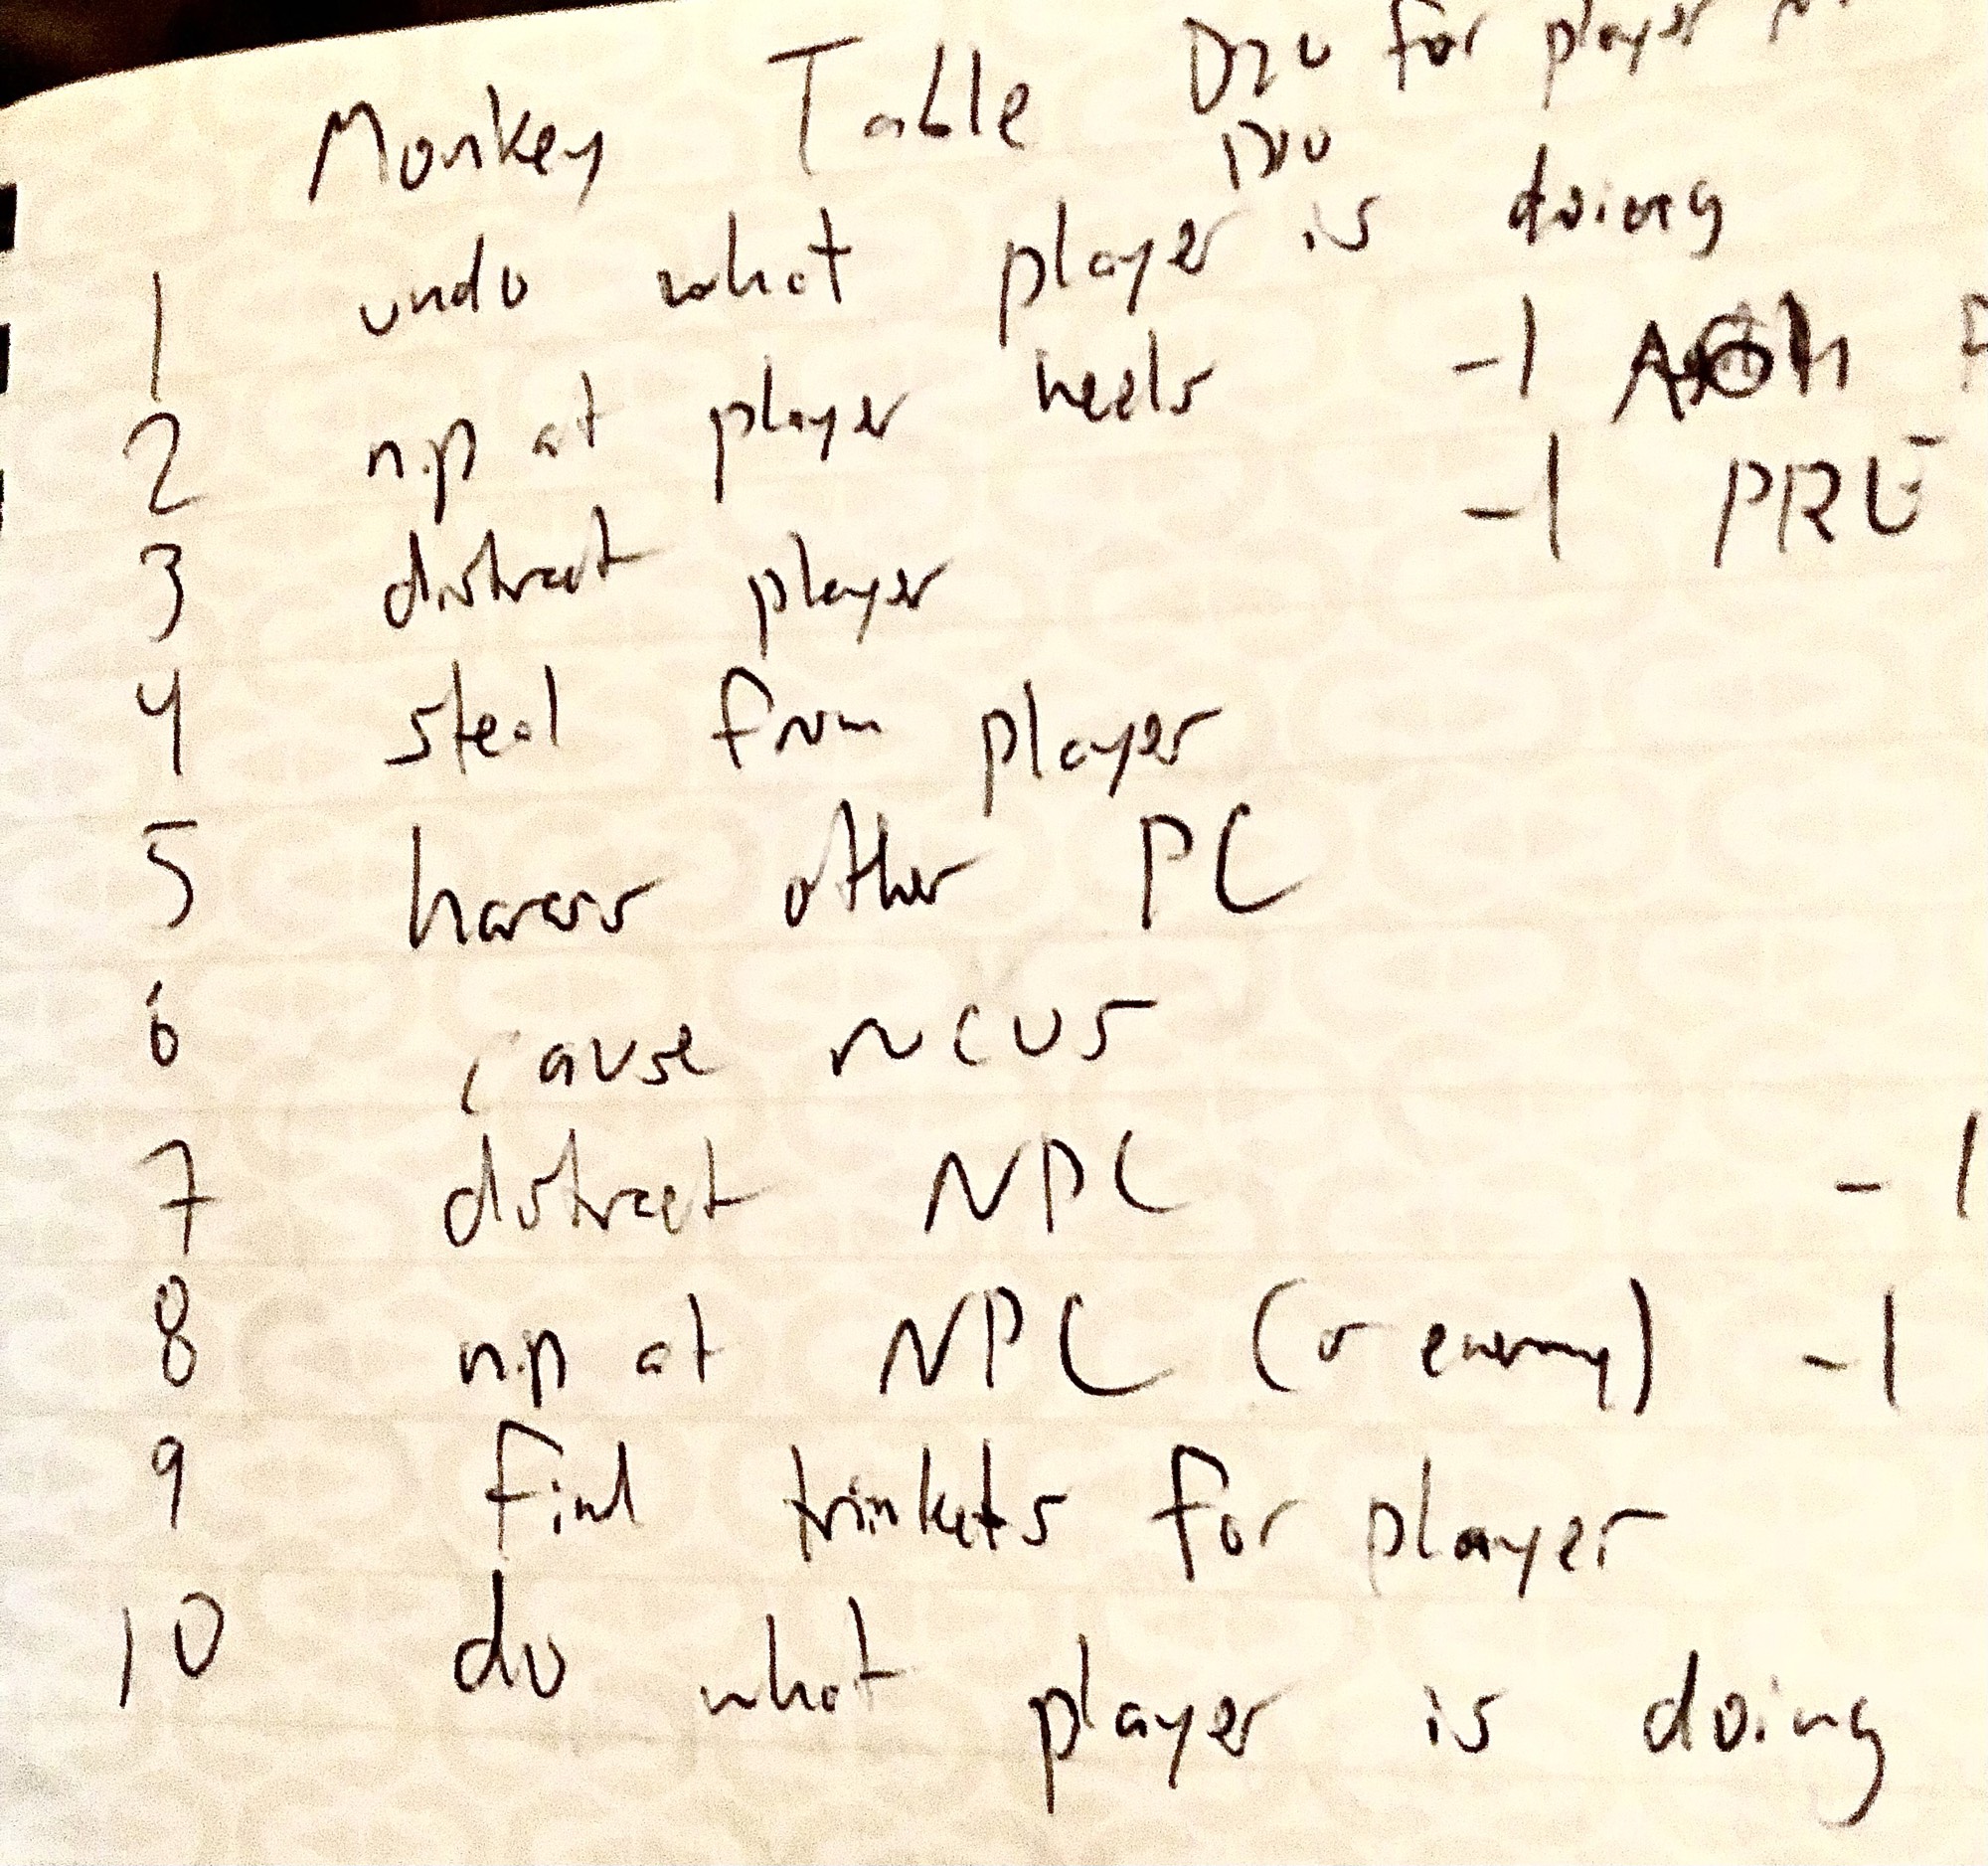 Monkey Table D20 for player
D10
1 undo what player is doing
2 nip at player heels -1 AGI
3 distract player -1 PRE
4 steal from player
5 harass other PC
6 cause rucus
7 distract NPC -1
8 nip at NPC (or enemy) -1
9 find trinkets for player
10 do what player is doing